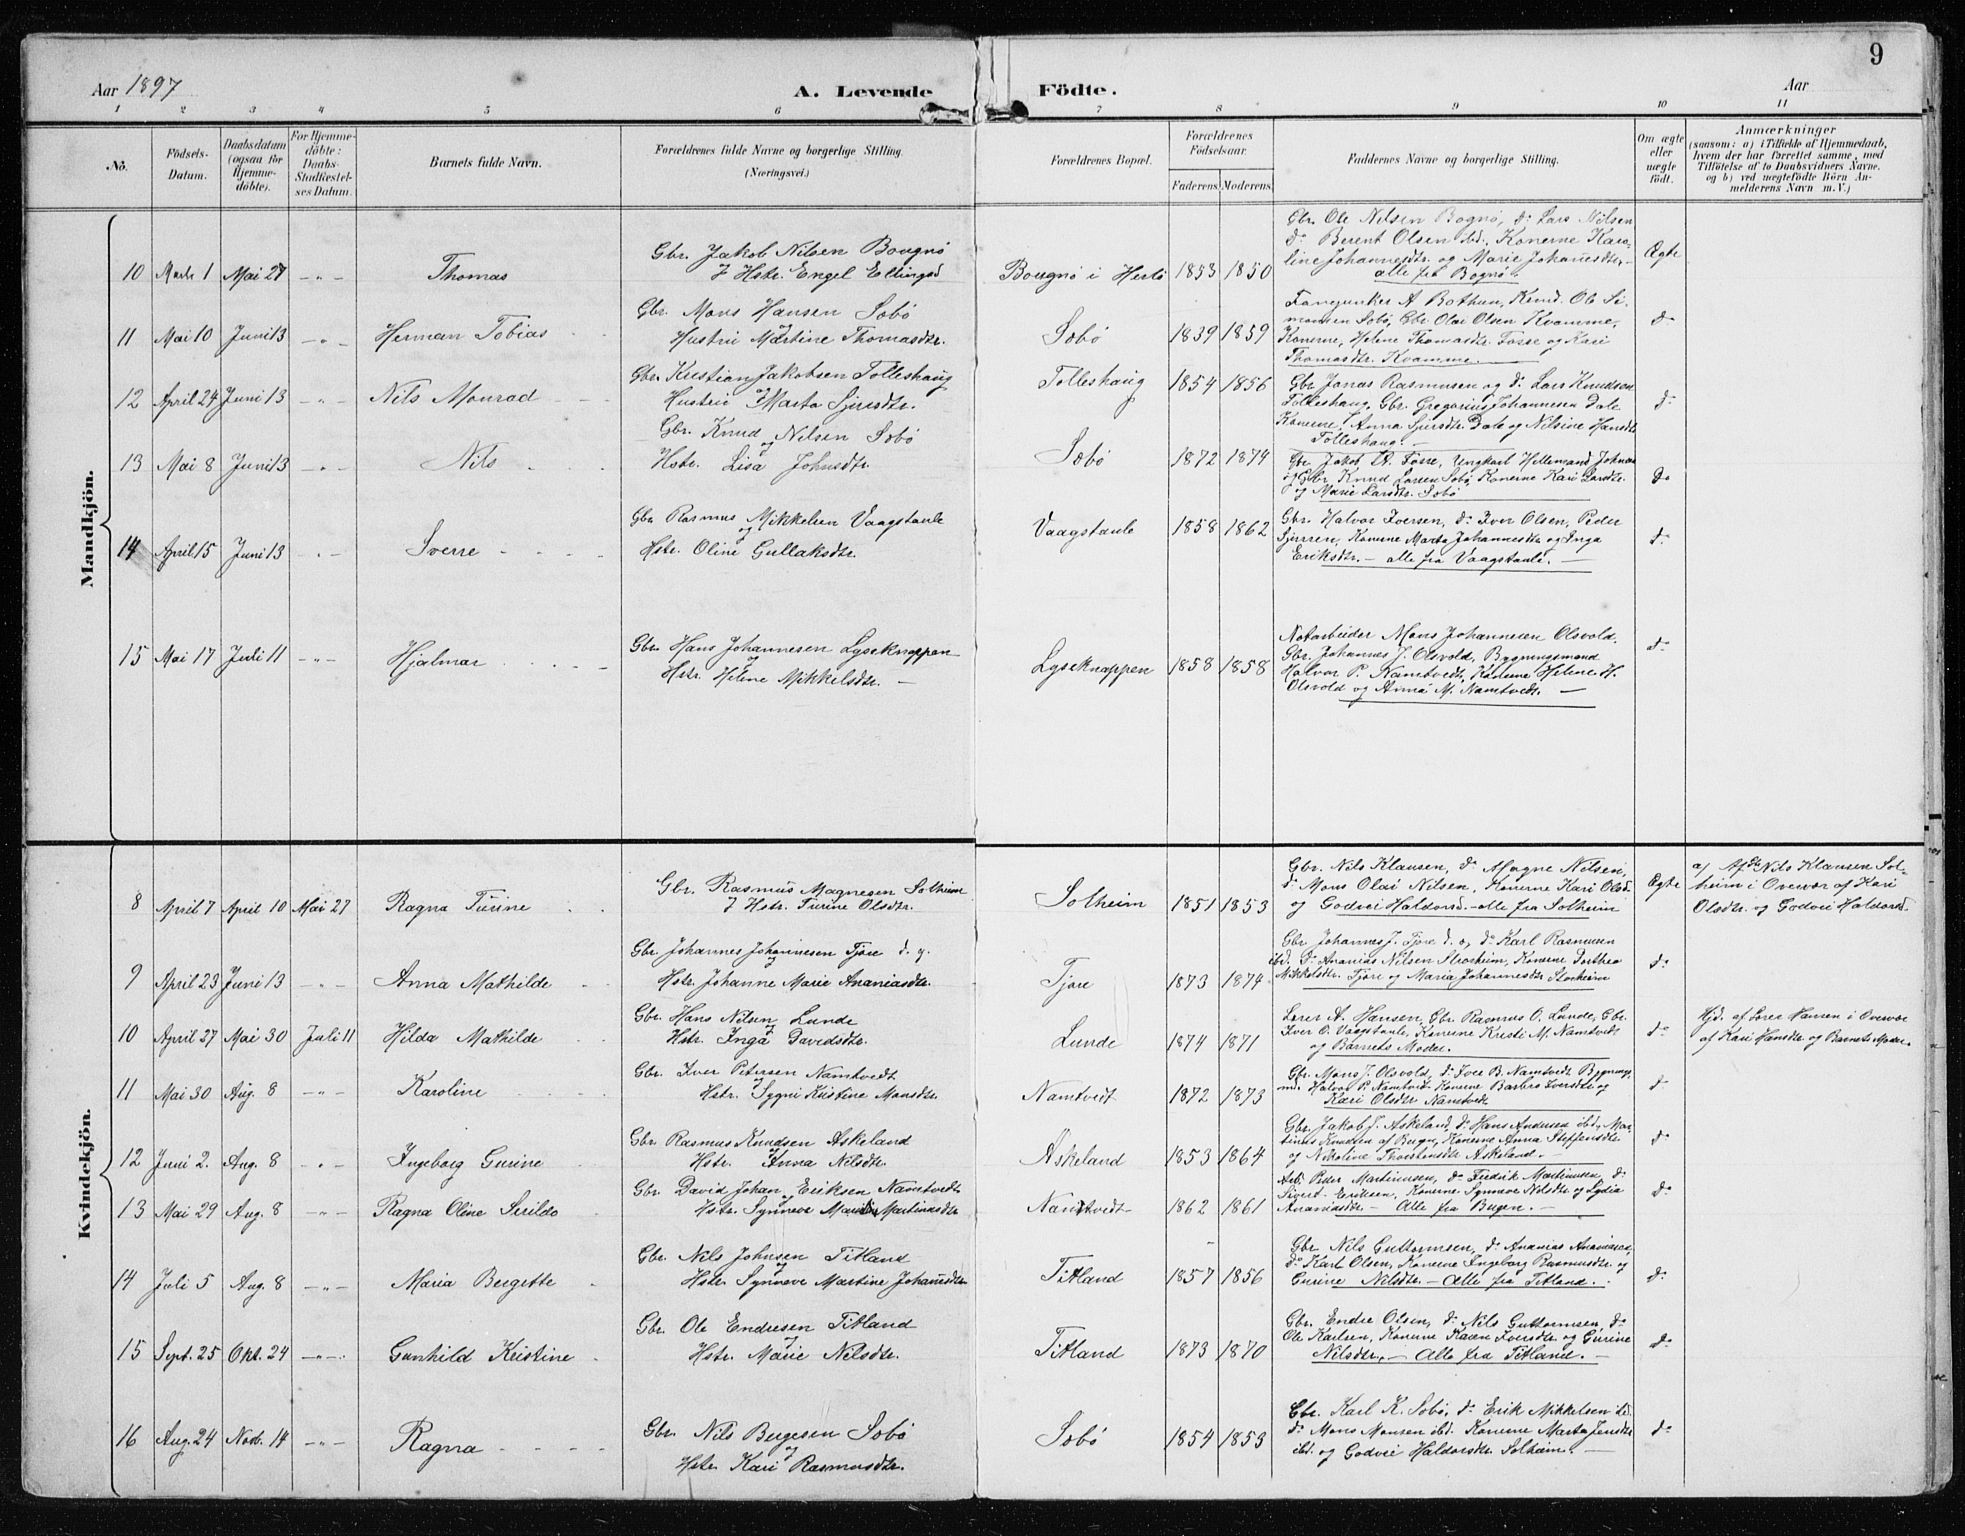 9
Aar 1897
A. Levende
Födte.
Aar
1 2 3 4 5 6 7 8 9 10 11
No.
Födsels-
Datum.
Daabsdatum
(ogsaa for
Hjemme-
döbte).
For Hjemme-
döbte:
Daabs-
Stadfæstel-
ses Datum.
Barnets fulde Navn.
Forældrenes fulde Navne og borgerlige Stilling.
(Næringsvei.)
Forældrenes Bopæl.
Forældrenes
Födselsaar.
Faderens. Moderens.
Faddernes Navne og borgerlige Stilling.
Om ægte
eller
uægte
födt.
Anmærkninger
(saasom: a) i Tilfælde af Hjemmedaab,
hvem der har forrettet samme, med
Tilföielse af to Daabsvidners Navne.
og b) ved uægtefödte Börn An-
melderens Navn m. V.)
Mandkjön.
10 Marts 1 Mai 27 -"- Thomas
Gbr. Jakob Nilsen Bougnö
Hstr. Engel Ellingsd
Bougnö i Herlö 1853 1850
Gbr. Ole Nilsen Bognö, do Lars Nilsen
do Berent Olsen ibd., Konerne Karo-
line Johannesdtr. og Marie Johanesdtr. -
alle fra Bognö.
Ægte
11 Mai 10 Juni 13 -"- Herman Tobias
Gbr. Mons Hansen Sobö
Hustru Martine Thomasdtr.
Sobö 1839 1859
Fanejunker A Bothun, Kmd. Ole Si-
monsen Sobö, Gbr Olai Olsen Kvamme,
Konerne, Helene Thomasdtr Fosse og Kari
Thomasdtr. Kvamme.
do
12 April 24 Juni 13 -"- Nils Monrad
Gbr. Kristian Jakobsen Tolleshaug
Hustru Marta Sjursdtr.
Tolleshaug 1854 1856
Gbr Jonas Rasmusen og do Lars Knudsen
Tolleshaug, Gbr. Gregorius Johannesen Dale
Konerne, Anna Sjursdtr. Dale og Nilsine Hansdtr
Tolleshaug. -
do
13 Mai 8 Juni 13 -"- Nils
Gbr. Knud Nilsen Sobö
og
Hstr. Lisa Johnsdtr.
Sobö 1872 1874
Gbr. Jakob A. Fosse, Ungkarl Hillemand Johnsen
og Gbr Knud Larsen Sobö, Konerne Kari Larsdtr.
og Marie Larsdtr. Sobö
do
14 April 15 Juni 13 -"- Sverre
Gbr Rasmus Mikkelsen Vaagstaule
og
Hstr. Oline Gullaksdtr.
Vaagstaule 1858 1862
Gbr. Halvor Iversen, do Iver Olsen, Peder
Sjursen, Konerne Marta Johannesdtr og Inga
Eriksdtr. - alle fra Vaagstaule. -
do
15 Mai 17 Juli 11 -"- Hjalmar
Gbr. Hans Johannesen Lyseknappen
og
Hstr. Helene Mikkelsdtr. -
Lyseknappen 1858 1858
Notarbeider Mons Johannesen Olsvold.
Gbr. Johannes J. Olsvold, Bygningsmand
Halvor P. Namtvedt, Konerne Helene H.
Olsvold og Anna M. Namtvedt. -
do
Kvindekjön.
8 April 7 April 10 Mai 27 Ragna Turine
Gbr. Rasmus Magnesen Solheim
Hstr. Turine Olsdtr.
Solheim 1851 1853
Gbr. Nils Klausen, do Magne Nilsen,
do Mons Olai Nilsen, Konerne Kari Olsd.
og Godvei Haldorsd. - alle fra Solheim
Ægte
a) Af Gbr Nils Klausen Sol-
heim i Overvær af Kari
Olsdtr. og Godvei Haldorsd.
9 April 23 Juni 13 -"- Anna Mathilde
Gbr Johannes Johannesen Tjore d. y.
Hstr Johanne Marie Ananiasdtr.
Tjore 1873 1874
Gbr Johannes J. Tjore d. o, do Karl Rasmusen
ibd. do Ananias Nilsen Storheim, Konerne Dorthea
Mikkelsdtr. Tjore og Maria Johannesdtr Storheim
do
10 April 27 Mai 30 Juli 11 Hilda Mathilde
Gbr. Hans Nilsen Lunde
Hstr. Inga Davidsdtr.
Lunde 1874 1871
Lærer A. Hansen, Gbr. Rasmus O. Lunde, Gbr.
Iver O. Vaagstaule, Konerne Kristi M. Namtvedt
og Barnets Moder.
do
Hjd. af Lærer Hansen i Overvær
af Kari Hansdtr og Barnets Moder.
11 Mai 30 Aug. 8 -"- Karoline
Gbr. Iver Petersen Namtvedt
Hstr. Sygni Kristine Monsdtr
Namtvedt 1872 1873
Gbr. Mons J. Olsvold, do Iver B. Namtvedt Bygnings
md. Halvor P. Namtvedt - Konerne Barbro Iversdtr og
Kari Olsdtr Namtvedt
do
12 Juni 2. Aug. 8 -"- Ingeborg Gurine
Gbr. Rasmus Knudsen Askeland
Hstr. Anna Nilsdtr.
Askeland 1853 1864
Gbr. Jakob J. Askeland, do Hans Andersen ibd., Mar-
tinus Knudsen af Bergn, Konerne Anna Steffensdtr
og Nikoline Thorstensdtr Askeland. -
do
13 Mai 29 Aug. 8 -"- Ragna Oline Serildo
Gbr. David Johan Eriksen Namtvedt
Hstr. Synneve Martinusdtr
Namtvedt 1862 1861
Arb. Peder Martinusen, do Fredrik Martinusen, do
Sivert Eriksen, Konerne Synneve Nilsdtr og Lydia
Ananiasdtr - Alle fra Bergen. -
do
14 Juli 5 Aug. 8 -"- Maria Bergitte
Gbr. Nils Johnsen Titland
og
Hstr. Synneve Martine Johansdtr
Titland 1857 1856
Gbr Nils Guttormsen, do Ananias Ananiasen,
do Karl Olsen, Konerne Ingeborg Rasmusdtr og
Gurine Nilsdtr. - Alle fra Titland.
do
15 Sept. 25 Okt. 24 -"- Gunhild Kristine
Gbr. Ole Endresen Titland
Hstr. Marie Nilsdtr.
Titland 1873 1870
Gbr. Endre Olsen, do Nils Guttormsen, do
Ole Karlsen, Konerne Karen Iversdtr og Gurine
Nilsdtr. - Alle fra Titland. -
do
16 Aug. 24 Novb. 14 -"- Ragna
Gbr. Nils Bergesen Sobö
og
Hstr. Kari Rasmusdtr.
Sobö 1854 1853
Gbr. Karl K. Sobö, do Erik Mikkelsen ibd.
do Mons Monsen ibd. Konerne Marta Jensdtr
ibd. og Godvei Haldorsdtr. Solheim. -
do